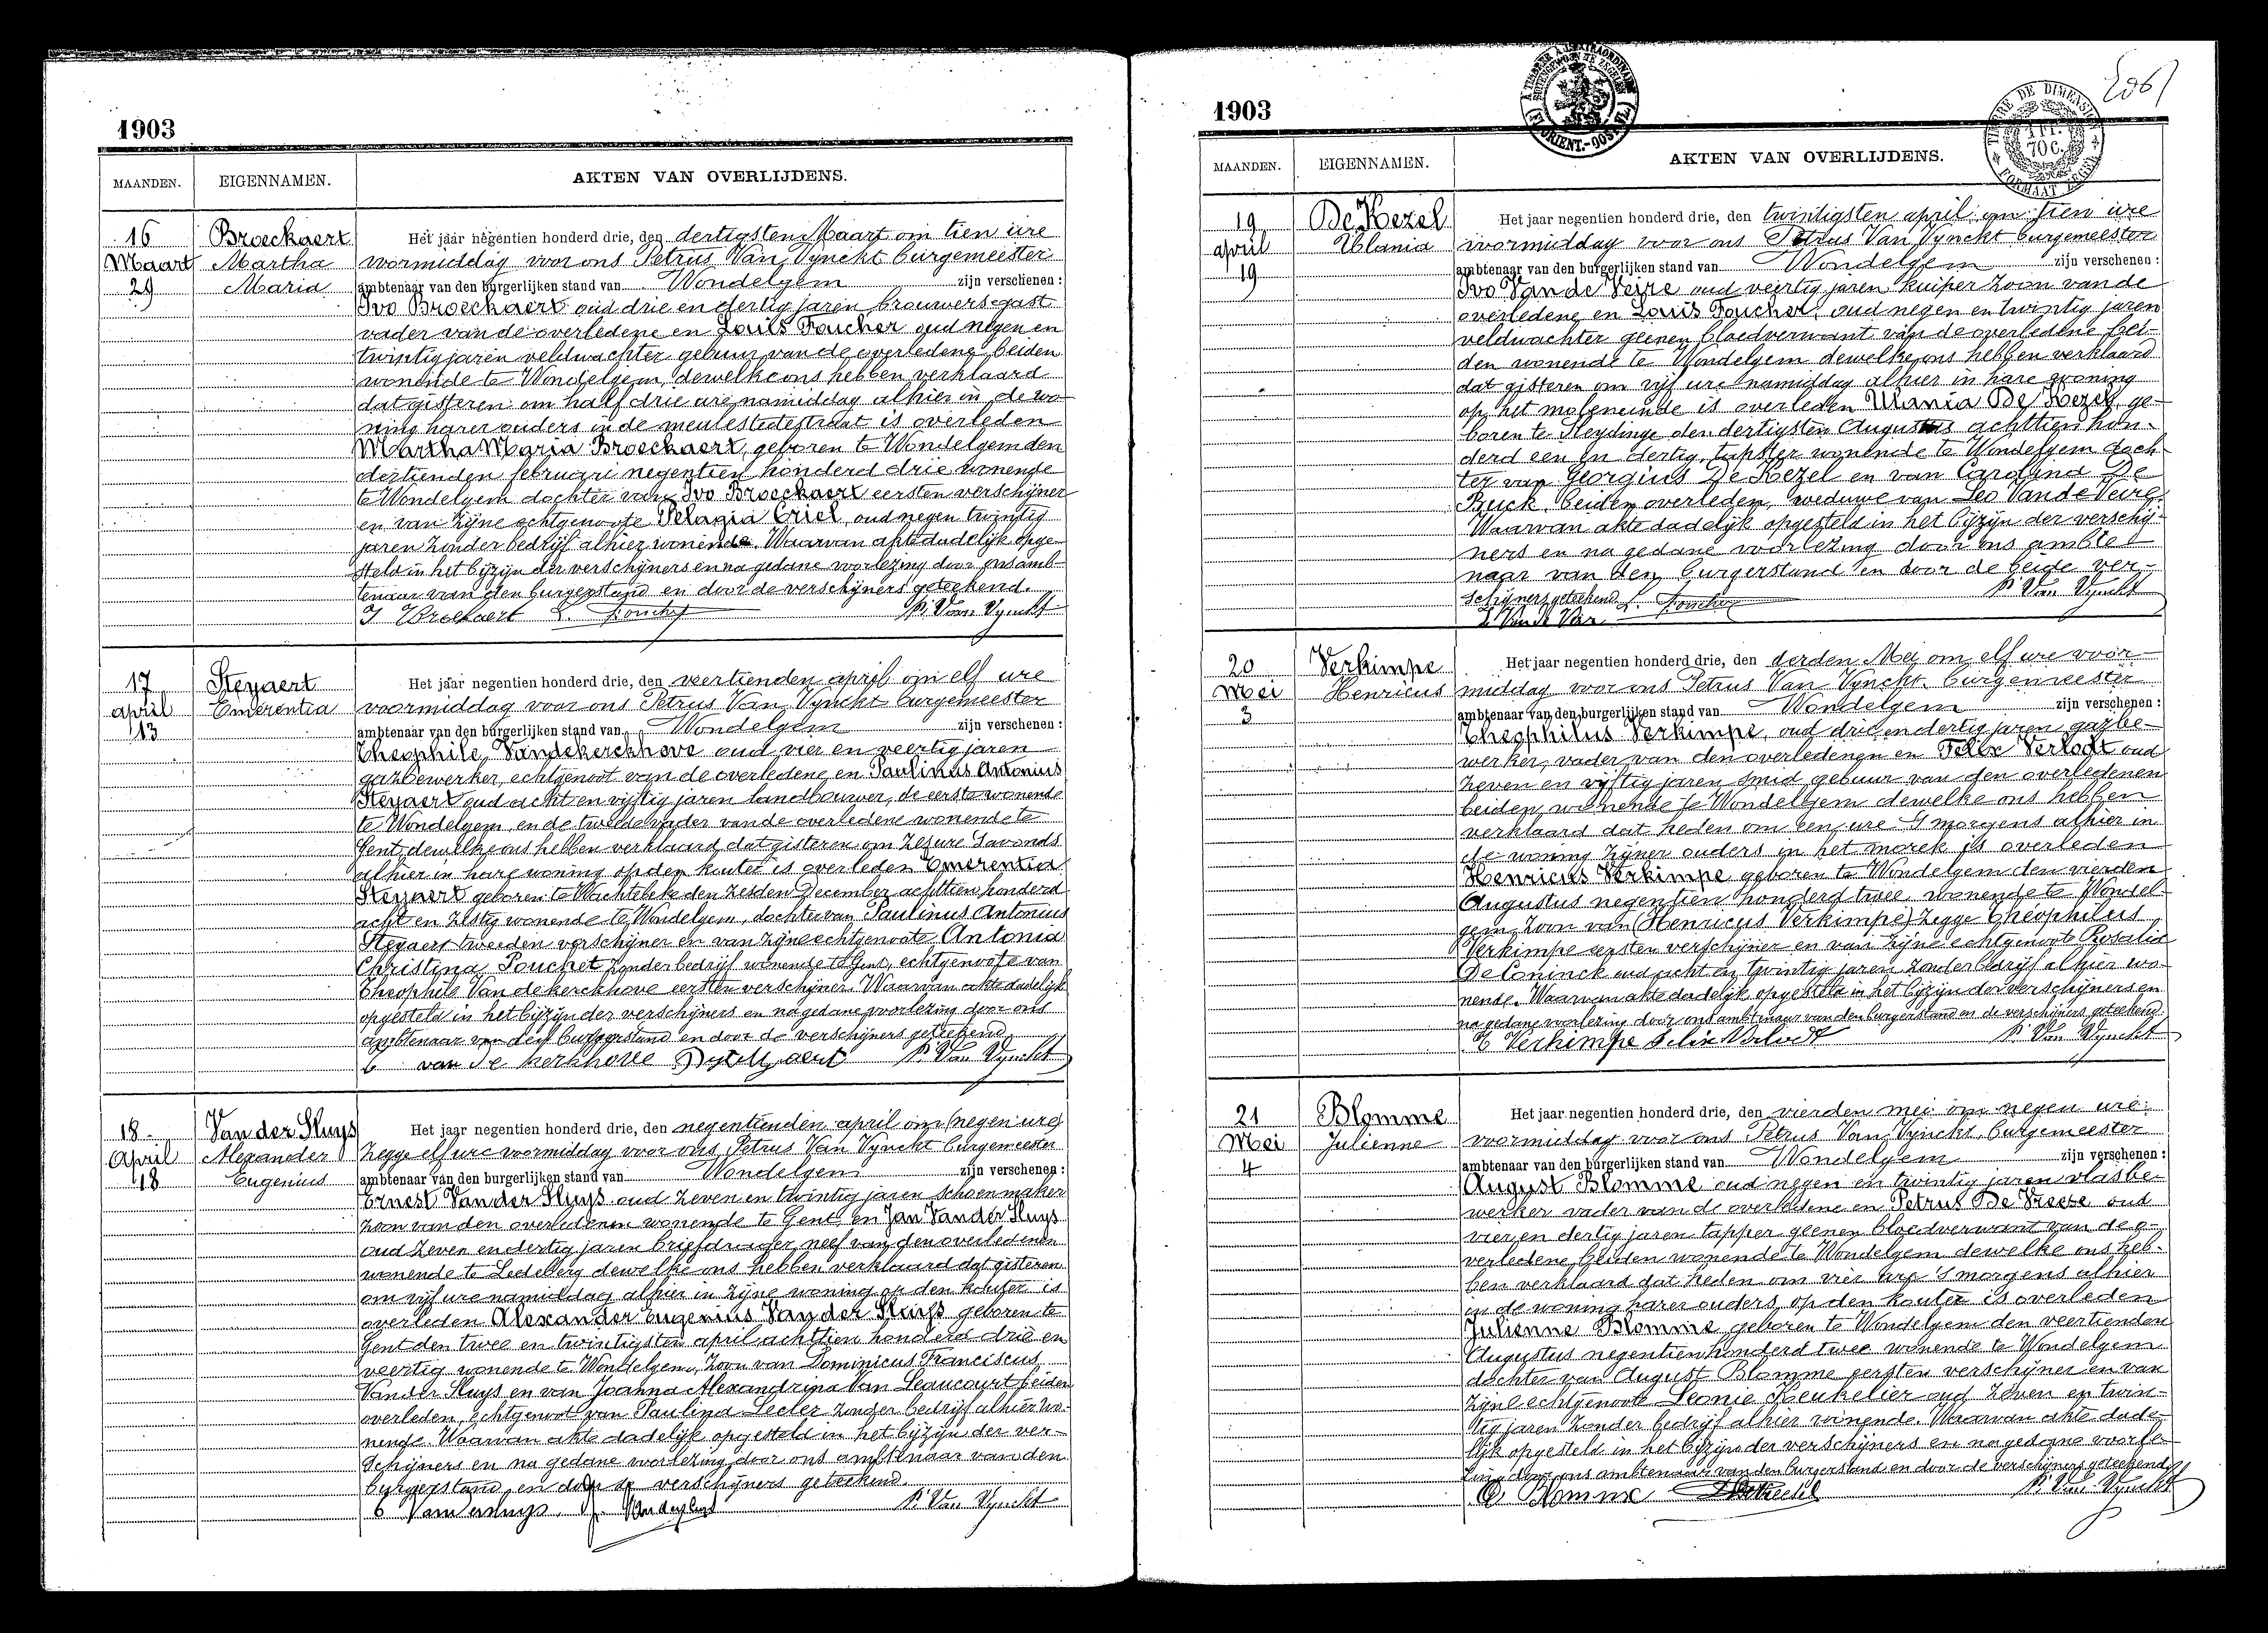 1903
MAANDEN. EIGENNAMEN. AKTEN VAN OVERLIJDENS.
16 Maart 29
Broeckaert Martha Maria
Het jaar negentien honderd drie, den dertigsten Maart om tien ure
voormiddag voor ons Petrus Van Vynckt burgemeester
ambtenaar van den burgerlijken stand van Wondelgem zijn verschenen :
Ivo Broeckaert oud drie en dertig jaren brouwersgast
vader van de overledene en Louis Foucher oud negen en
twintig jaren veldwachter gebuur van de overledene, beiden
wonende te Wondelgem, dewelke ons hebben verklaard
dat gisteren om half drie ure namiddag alhier in de wo-
ning harer ouders in de meulestedestraat is overleden
Martha Maria Broeckaert, geboren te Wondelgem den
dertienden februari negentien honderd drie wonende
te Wondelgem dochter van Ivo Broeckaert eersten verschijner
en van zijne echtgenoote Pelagia Criel, oud negen twintig
jaren zonder bedrijf alhier wonende. Waarvan akte dadelijk opge-
steld in het bijzijn der verschijners en na gedane voorlezing door ons amb-
tenaar van den burgerstand en door de verschijners geteekend.
I Broekaert L. Foucher P. Van Vynckt
17 april 13
Steyaert Emerentia
Het jaar negentien honderd drie, den veertienden april om elf ure
voormiddag voor ons Petrus Van Vynckt burgemeester
ambtenaar van den burgerlijken stand van Wondelgem zijn verschenen :
Theophile Vandekerckhove oud vier en veertig jaren
gazbewerker, echtgenoot van de overledene, en Paulinus Antonius
Steyaert oud acht en vijftig jaren landbouwer, de eerste wonende
te Wondelgem, en de tweede vader van de overledene wonende te
Gent, dewelke ons hebben verklaard, dat gisteren om zes ure s'avonds
alhier in hare woning op den kouter is overleden Emerentia
Steyaert geboren te Wachtebeke den zesden December achttien honderd
acht en zestig wonende te Wondelgem, dochter van Paulinus Antonius
Steyaert tweeden verschijner en van zijne echtgenoote Antonia
Christina Pouchet zonder bedrijf wonende te Gent, echtgenoote van
Theophile Vandekerckhove eersten verschijner. Waarvan akte dadelijk
opgesteld in het bijzijn der verschijners en na gedane voorlezing door ons
ambtenaar van den burgerstand en door de verschijners geteekend.
van de kerkhove P. Van Vynckt
18 April 18
Van der Sluys Alexander Eugenius
Het jaar negentien honderd drie, den negentienden april om (negen ure)
zegge elf ure voormiddag voor ons Petrus Van Vynckt burgemeester
ambtenaar van den burgerlijken stand van Wondelgem zijn verschenen :
Ernest Van der Sluys oud zeven en twintig jaren schoenmaker
zoon van den overledenen wonende te Gent, en Jan Van der Sluys
oud zeven en dertig jaren briefdrager neef van den overledenen
wonende te Ledeberg dewelke ons hebben verklaard dat gisteren
om vijf ure namiddag alhier in zijne woning op den kouter is
overleden Alexander Eugenius Van der Sluys geboren te
Gent den twee en twintigsten april achttien honderd drie en
veertig wonende te Wondelgem, zoon van Dominicus Franciscus
Van der Sluys en van Joanna Alexandrina Van Leaucourt beiden
overleden, echtgenoot van Paulina Lecler zonder bedrijf alhier wo-
nende. Waarvan akte dadelijk opgesteld in het bijzijn der ver-
schijners en na gedane voorlezing door ons ambtenaar van den
burgerstand en door de verschijners geteekend.
E Vandersluys. J. Vandersluys P. Van Vynckt
1903
206
MAANDEN. EIGENNAMEN. AKTEN VAN OVERLIJDENS.
19 april 19
De Kezel Ulania
Het jaar negentien honderd drie, den twintigsten april om tien ure
voormiddag voor ons Petrus Van Vynckt burgemeester
ambtenaar van den burgerlijken stand van Wondelgem zijn verschenen :
Ivo Van de Veire oud veertig jaren kuiper zoon van de
overledene en Louis Foucher, oud negen en twintig jaren
veldwachter geenen bloedverwant van de overledene bei-
den wonende te Wondelgem dewelke ons hebben verklaard
dat gisteren om vijf ure namiddag alhier in hare woning
op het moleneinde is overleden Ulania De Kezel, ge-
boren te Sleydinge den dertigsten Augustus achttien hon-
derd een en dertig, tapster wonende te Wondelgem doch-
ter van Georgius De Kezel en van Carolina De
Buck, beiden overleden, weduwe van Leo Van de Veire.
Waarvan akte dadelijk opgesteld in het bijzijn der verschij-
ners en na gedane voorlezing door ons ambte-
naar van den burgerstand en door de beide ver-
schijners geteekend L. Foucher P. Van Vynckt
20 Mei 3
Verkimpe Henricus
Het jaar negentien honderd drie, den derden Mei om elf ure voor-
middag voor ons Petrus Van Vynckt burgemeester
ambtenaar van den burgerlijken stand van Wondelgem zijn verschenen :
Theophilus Verkimpe, oud drie en dertig jaren gazbe-
werker, vader van den overledenen en Felix Verlodt oud
zeven en vijftig jaren smid gebuur van den overledenen
beiden wonende te Wondelgem dewelke ons hebben
verklaard dat heden om een ure s'morgens alhier in
de woning zijner ouders in het morek is overleden
Henricus Verkimpe geboren te Wondelgem den vierden
Augustus negentien honderd twee, wonende te Wondel-
gem zoon van (Henricus Verkimpe) zegge Theophilus
Verkimpe eersten verschijner en van zijne echtgenoote Rosalia
De Coninck oud acht en twintig jaren zonder bedrijf alhier wo-
nende. Waarvan akte dadelijk opgesteld in het bijzijn der verschijners en
na gedane voorlezing door ons ambtenaar van den burgerstand en de verschijners geteekend.
T Verkimpe Felix Verlodt P. Van Vynckt
21 Mei 4
Blomme Julienne
Het jaar negentien honderd drie, den vierden mei om negen ure
voormiddag voor ons Petrus Van Vynckt, burgemeester
ambtenaar van den burgerlijken stand van Wondelgem zijn verschenen :
August Blomme oud negen en twintig jaren vlasbe-
werker vader van de overledene en Petrus De Vreese oud
vier en dertig jaren tapper geenen bloedverwant van de o-
verledene, beiden wonende te Wondelgem dewelke ons heb-
ben verklaard dat heden om vier ure 's morgens alhier
in de woning harer ouders, op den kouter is overleden
Julienne Blomme geboren te Wondelgem den veertienden
Augustus negentien honderd twee wonende te Wondelgem
dochter van August Blomme eersten verschijner en van
zijne echtgenoote Leonie Keukelier oud zeven en twin-
tig jaren zonder bedrijf alhier wonende. Waarvan akte dade-
lijk opgesteld in het bijzijn der verschijners en na gedane voorle-
zing door ons ambtenaar van den burgerstand en door de verschijners geteekend
Blomme P. Van Vynckt